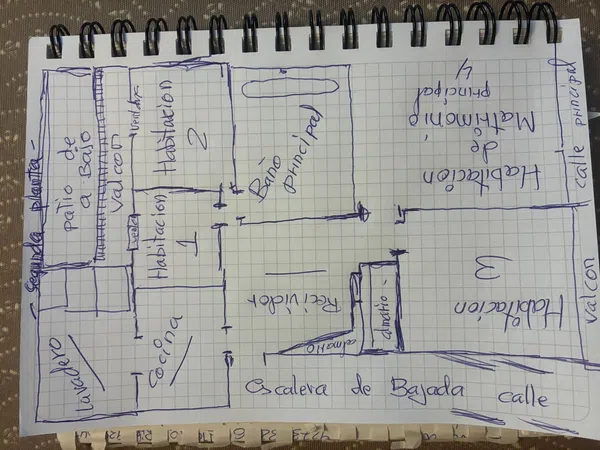 - Segunda planta -
patio de
a Bajo
valcon
ventana
Habitacion
2
Baño
principal
Habitacion
de
Matrimonio
principal
4
calle principal
venta
Habitacion
1
Recividor
Habitacion
3
valcon
lavadero
Cocina
almario
almario
Escalera de Bajada
calle